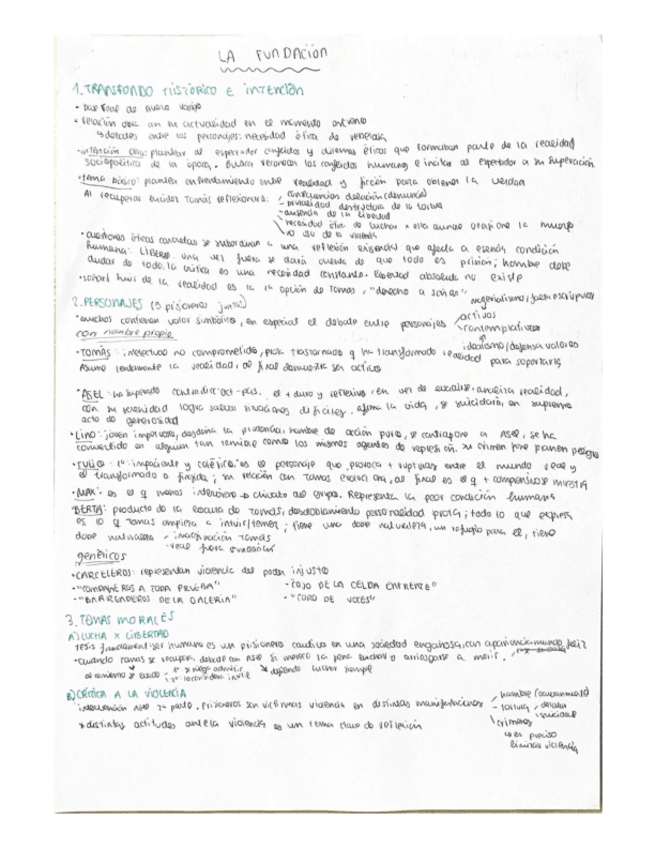 LA FUNDACIÓN
1. TRANSFONDO HISTÓRICO E INTENCIÓN
• base real de Buero Vallejo
• relación obra con su actualidad en el momento
↳ debates entre los personajes: necesidad ética de
• intención obra: plantear al espectador conflictos y dilemas éticos que formaban parte de la realidad
sociopolítica de la época. Busca los conflictos humanos e incitar al espectador a su superación.
• tema básico: plantea enfrentamiento entre realidad y ficción para obtener la verdad
Al recuperar Tomás reflexionará: - consecuencias delación (denuncia)
- crueldad destructora de la tortura
- ausencia de la libertad
- necesidad ética de luchar x ella aunque ocasione la muerte
- no uso de la violencia
• cuestiones éticas concretas se subordinan a una reflexión existencial que afecta a esencia condición
humana: LIBERTAD. una vez fuera se dará cuenta de que todo es prisión; hombre debe
dudar de todo, la crítica es una necesidad constante. Libertad absoluta no existe
• soñar/huir de la realidad es la 1ª opción de Tomás, "derecho a soñar"
2. PERSONAJES (5 prisioneros juntos)
• muchos contienen valor simbólico, en especial el debate entre personajes activos
contemplativos
idealismo/defensa valores
con nombre propio
• TOMÁS: intelectual no comprometido, trastornado y ha transformado realidad para soportarla
Asume lentamente la realidad, al final demuestra ser activo
• ASEL: ha superado contradicc. act-pas. el + duro y reflexivo, en vez de analiza realidad,
con su serenidad lógica salva situaciones difíciles, afirma la vida, se suicidará, en supremo
acto de generosidad
• LINO: joven impetuoso, desdeña la prudencia, hombre de acción puro, se contrapone a ASEL, se ha
convertido en alguien tan temible como los mismos agentes de represión. su crimen pone planen peligro
• TULIO: 1º: impaciente y colérico. es el personaje que provoca + rupturas entre el mundo real y
el transformado o fingido; su relación con Tomás evoluciona, al final es el q + comprensivo se muestra
• MAX: es el q menos interviene → del grupo. Representa la peor condición humana
• BERTA: producto de la locura de Tomás, desdoblamiento personalidad prota; todo lo que expresa
es lo q Tomás empieza a intuir/temer; tiene una doble naturaleza, un refugio para él, tiene
doble naturaleza - imaginación Tomás
- real
genéricos
• CARCELEROS: representan violencia del poder injusto
• "COMPAÑEROS A TODA PRUEBA" • "COJO DE LA CELDA ENFRENTE"
• "BARRENDEROS DE LA GALERÍA" • "CORO DE VOCES"
3. TEMAS MORALES
A) LUCHA X LIBERTAD
tesis fundamental: ser humano es un prisionero cautivo en una sociedad engañosa, con apariencia mundo feliz
• Cuando Tomás se recupera, debate con Asel si merece la pena luchar y arriesgarse a morir.
1º se niega admitir
2º lo considera inútil luchar siempre
B) CRÍTICA A LA VIOLENCIA
intervención Asel 2ª parte. Prisioneros son víctimas violencia en distintas manifestaciones
- hambre
- tortura
- delación
- suicidio
- crímenes
↳ es preciso
eliminar violencia
* distintas actitudes ante la violencia es un tema clave de reflexión